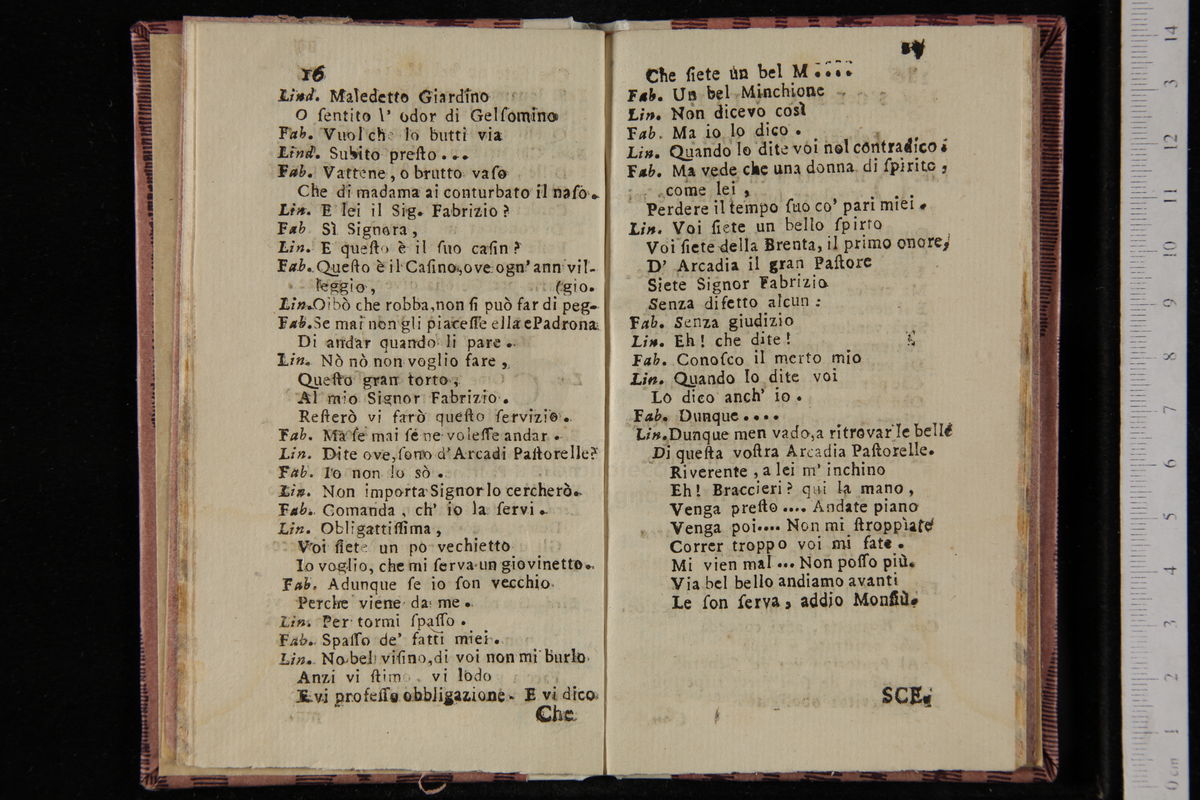 16
Lind. Maledetto Giardino
O ſentito l' odor di Gelſomino
Fab. Vuol che lo butti via
Lind. Subito preſto...
Fab. Vattene, o brutto vaſo
Che di madama ai conturbato il naſo.
Lin. E lei il Sig. Fabrizio?
Fab Sì Signora,
Lin. E queſto è il ſuo caſin?
Fab. Queſto è il Caſino, ove ogn' ann vil-
leggio, (gio.
Lin. Oibò che robba, non ſi può far di peg-
Fab. Se mai non gli piaceſſe ella e Padrona
Di andar quando li pare.
Lin. Nò nò non voglio fare,
Queſto gran torto,
Al mio Signor Fabrizio.
Reſterò vi farò queſto ſervizio.
Fab. Ma ſe mai ſe ne voleſſe andar.
Lin. Dite ove, ſono d'Arcadi Paſtorelle?
Fab. Io non lo sò.
Lin. Non importa Signor lo cercherò.
Fab. Comanda, ch' io la ſervi.
Lin. Obligattiſſima,
Voi ſiete un pò vechietto
Io voglio, che mi ſerva un giovinetto.
Fab. Adunque ſe io ſon vecchio
Perche viene da me.
Lin. Per tormi ſpaſſo.
Fab. Spaſſo de' fatti miei.
Lin. No bel viſino, di voi non mi burlo
Anzi vi ſtimo, vi lodo
E vi profeſſo obbligazione. E vi dico
Che
17
Che ſiete un bel M....
Fab. Un bel Minchione
Lin. Non dicevo così
Fab. Ma io lo dico.
Lin. Quando lo dite voi nol contradico:
Fab. Ma vede che una donna di ſpirito,
come lei,
Perdere il tempo ſuo co' pari miei.
Lin. Voi ſiete un bello ſpirto
Voi ſiete della Brenta, il primo onore,
D' Arcadia il gran Paſtore
Siete Signor Fabrizio
Senza difetto alcun:
Fab. Senza giudizio
Lin. Eh! che dite!
Fab. Conoſco il merto mio
Lin. Quando lo dite voi
Lo dico anch' io.
Fab. Dunque....
Lin. Dunque men vado, a ritrovar le belle
Di queſta voſtra Arcadia Paſtorelle.
Riverente, a lei m' inchino
Eh! Braccieri? qui la mano,
Venga preſto.... Andate piano
Venga poi.... Non mi ſtroppìate
Correr troppo voi mi fate.
Mi vien mal... Non poſſo più.
Via bel bello andiamo avanti
Le ſon ſerva, addio Monſiù.
SCE.